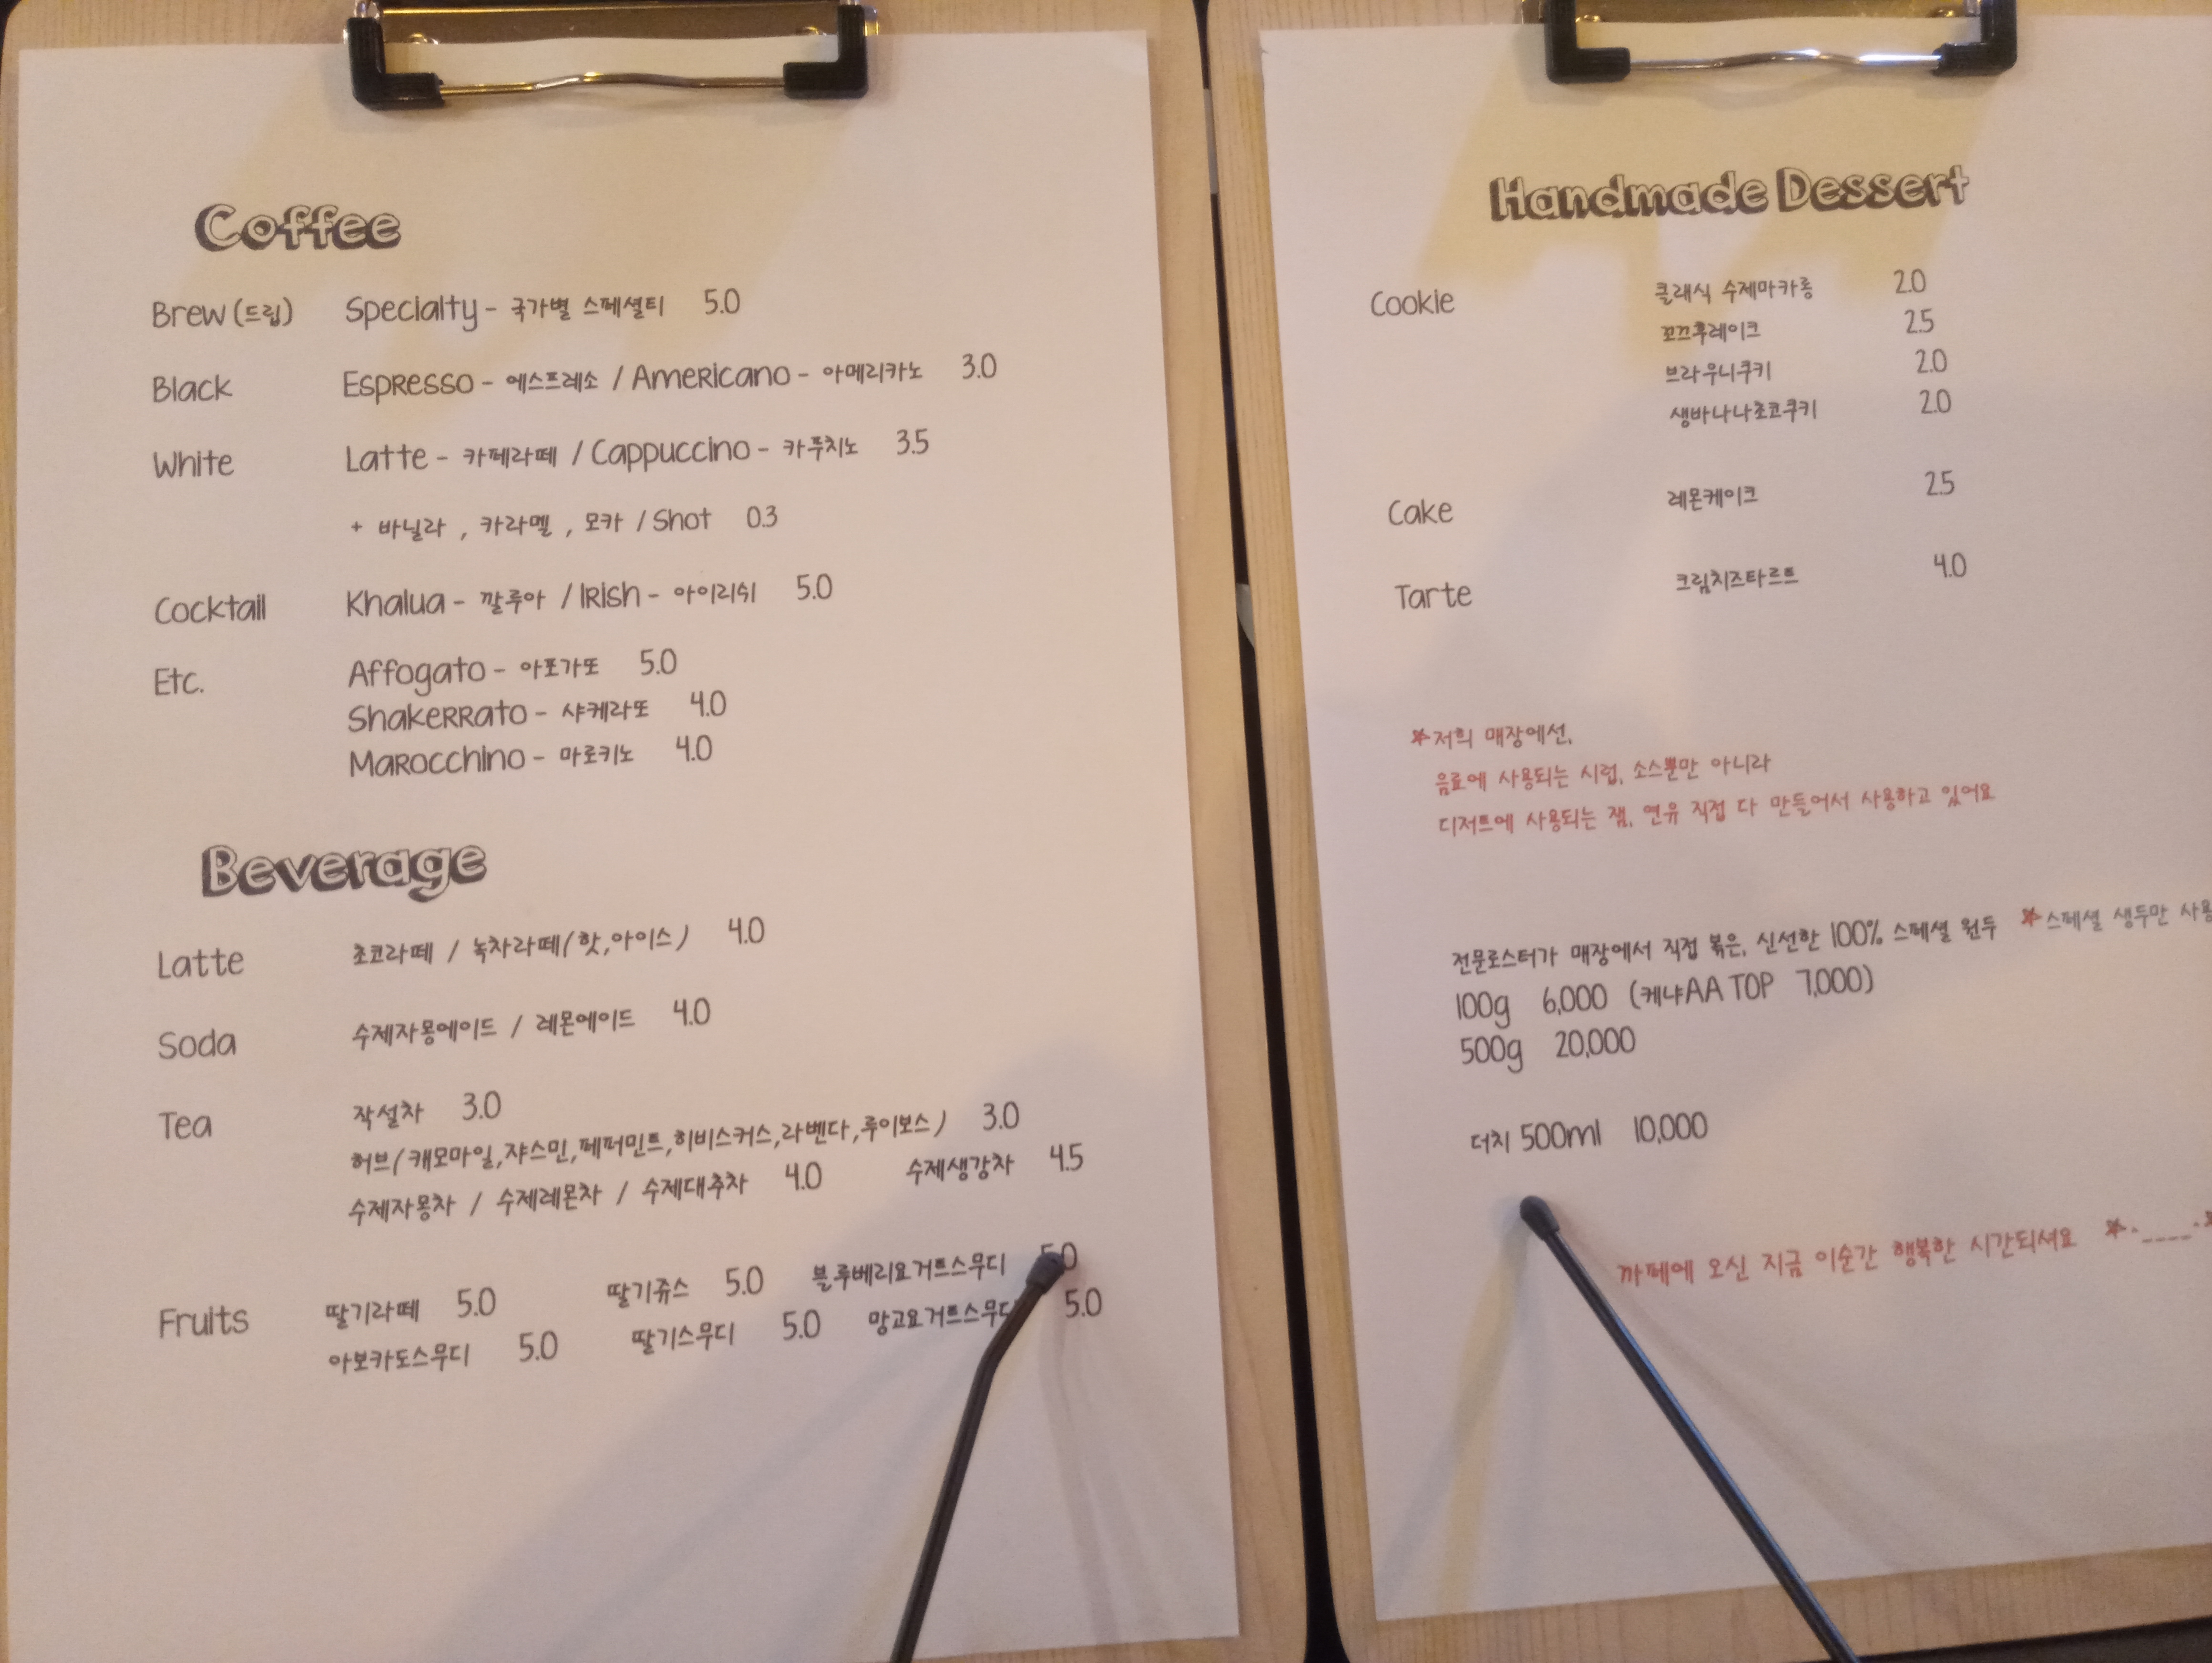 Coffee
Brew (드립) Specialty - 국가별 스페셜티 5.0
Black Espresso - 에스프레소 / Americano - 아메리카노 3.0
White Latte - 카페라떼 / Cappuccino - 카푸치노 3.5
+ 바닐라 , 카라멜 , 모카 / Shot 0.3
Cocktail Khalua - 깔루아 / Irish - 아이리쉬 5.0
Etc. Affogato - 아포가또 5.0
Shakerrato - 샤케라또 4.0
Marocchino - 마로키노 4.0
Beverage
Latte 초코라떼 / 녹차라떼(핫,아이스) 4.0
Soda 수제자몽에이드 / 레몬에이드 4.0
Tea 작설차 3.0
허브(캐모마일,쟈스민,페퍼민트,히비스커스,라벤다,루이보스) 3.0
수제자몽차 / 수제레몬차 / 수제대추차 4.0 수제생강차 4.5
Fruits 딸기라떼 5.0 딸기쥬스 5.0 블루베리요거트스무디 5.0
아보카도스무디 5.0 딸기스무디 5.0 망고요거트스무디 5.0
Handmade Dessert
Cookie 클래식 수제마카롱 2.0
꼬끄후레이크 2.5
브라우니쿠키 2.0
생바나나초코쿠키 2.0
Cake 레몬케이크 2.5
Tarte 크림치즈타르트 4.0
*저희 매장에선,
음료에 사용되는 시럽, 소스뿐만 아니라
디저트에 사용되는 잼, 연유 직접 다 만들어서 사용하고 있어요
전문로스터가 매장에서 직접 볶은, 신선한 100% 스페셜 원두 *스페셜 생두만 사용
100g 6,000 (케냐AA TOP 7,000)
500g 20,000
더치 500ml 10,000
까페에 오신 지금 이순간 행복한 시간되셔요 *.____.*